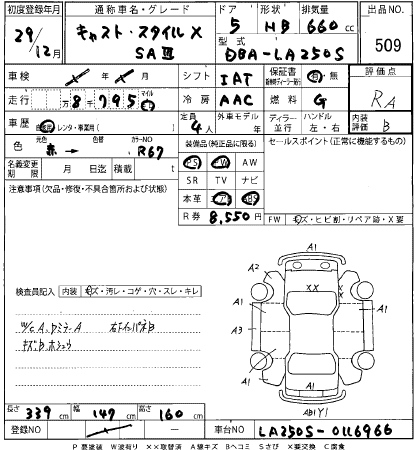 初度登録年月 通称車名・グレード ドア 形状 排気量 出品NO.
29/12月 キャスト・スタイルX SAⅢ 5 HB 660cc 509
型式 DBA-LA250S
車検 月 シフト IAT 保証書 有・無 評価点
走行 万8千795 マイル 冷房 AAC 燃料 G RA
車歴 自家用・レンタ・事業用( ) 定員 4人 外車モデル年 ディーラー・並行 ハンドル 左・右 内装評価 B
色 元色 赤→ 色替 カラーNO R67
装備品(純正品に限る) セールスポイント(正常に機能するもの)
PS PW AW
名義変更期限 月 日迄 積載 t SR TV ナビ
注意事項(欠品・修復・不具合箇所および状態) 本革 エアB
R券 8,550円 FW キズ・ヒビ割・リペア跡・X要
A1
A2 XX
検査員記入 内装 キズ・汚レ・コゲ・穴・スレ・キレ
A1 A1
W/C A、Dミラー A
キズ B ホシュウ
A3
A1
長さ 339cm 幅 147cm 高さ 160cm AB1 Y1
登録NO 車台NO LA250S-0116966
P 要塗装 W波有り ××取替済 A線キズ Bヘコミ Sさび ×要交換 C腐食